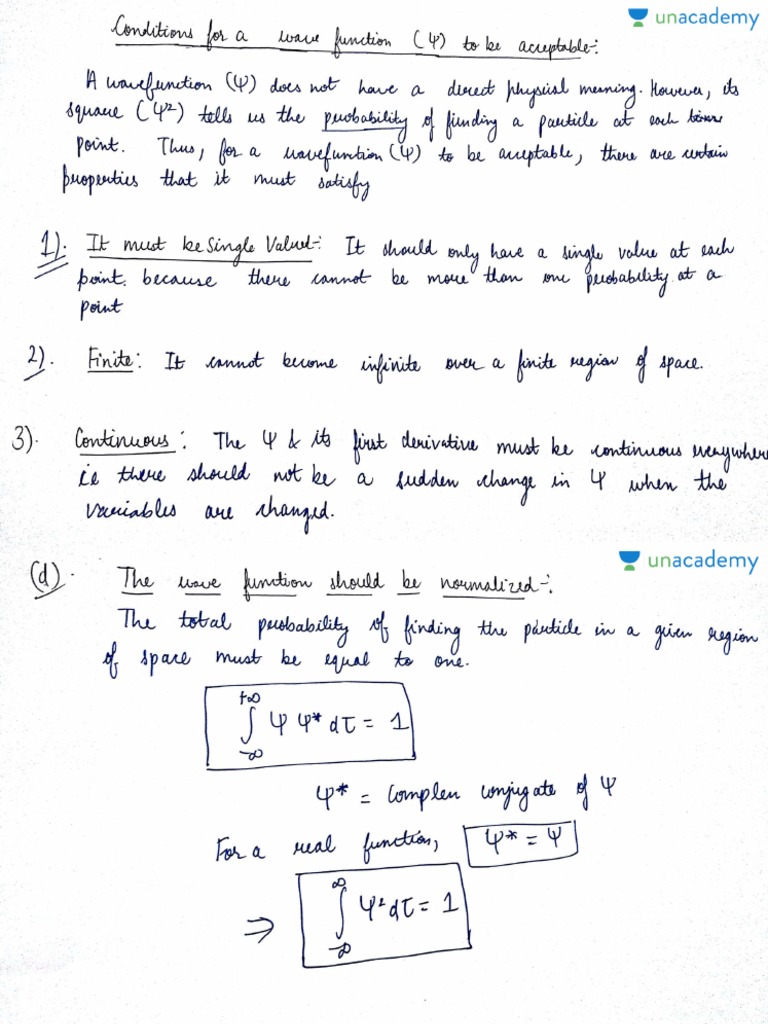 unacademy
Conditions for a wave function (Ψ) to be acceptable:-
A wavefunction (Ψ) does not have a direct physical meaning. However, its
square (Ψ²) tells us the probability of finding a particle at each
point. Thus, for a wavefuntion (Ψ) to be acceptable, there are certain
properties that it must satisfy
1). It must be Single Valued:- It should only have a single value at each
point. because there cannot be more than one probability at a
point
2). Finite: It cannot become infinite over a finite region of space.
3). Continuous: The Ψ & its first derivative must be continuous everywhere
ie there should not be a sudden change in Ψ when the
variables are changed.
unacademy
(d). The wave function should be normalized:-
The total probability of finding the particle in a given region
of space must be equal to one.
+∞
∫ Ψ Ψ* dτ = 1
-∞
Ψ* = Complex conjugate of Ψ
For a real function, Ψ* = Ψ
∞
⇒ ∫ Ψ² dτ = 1
-∞